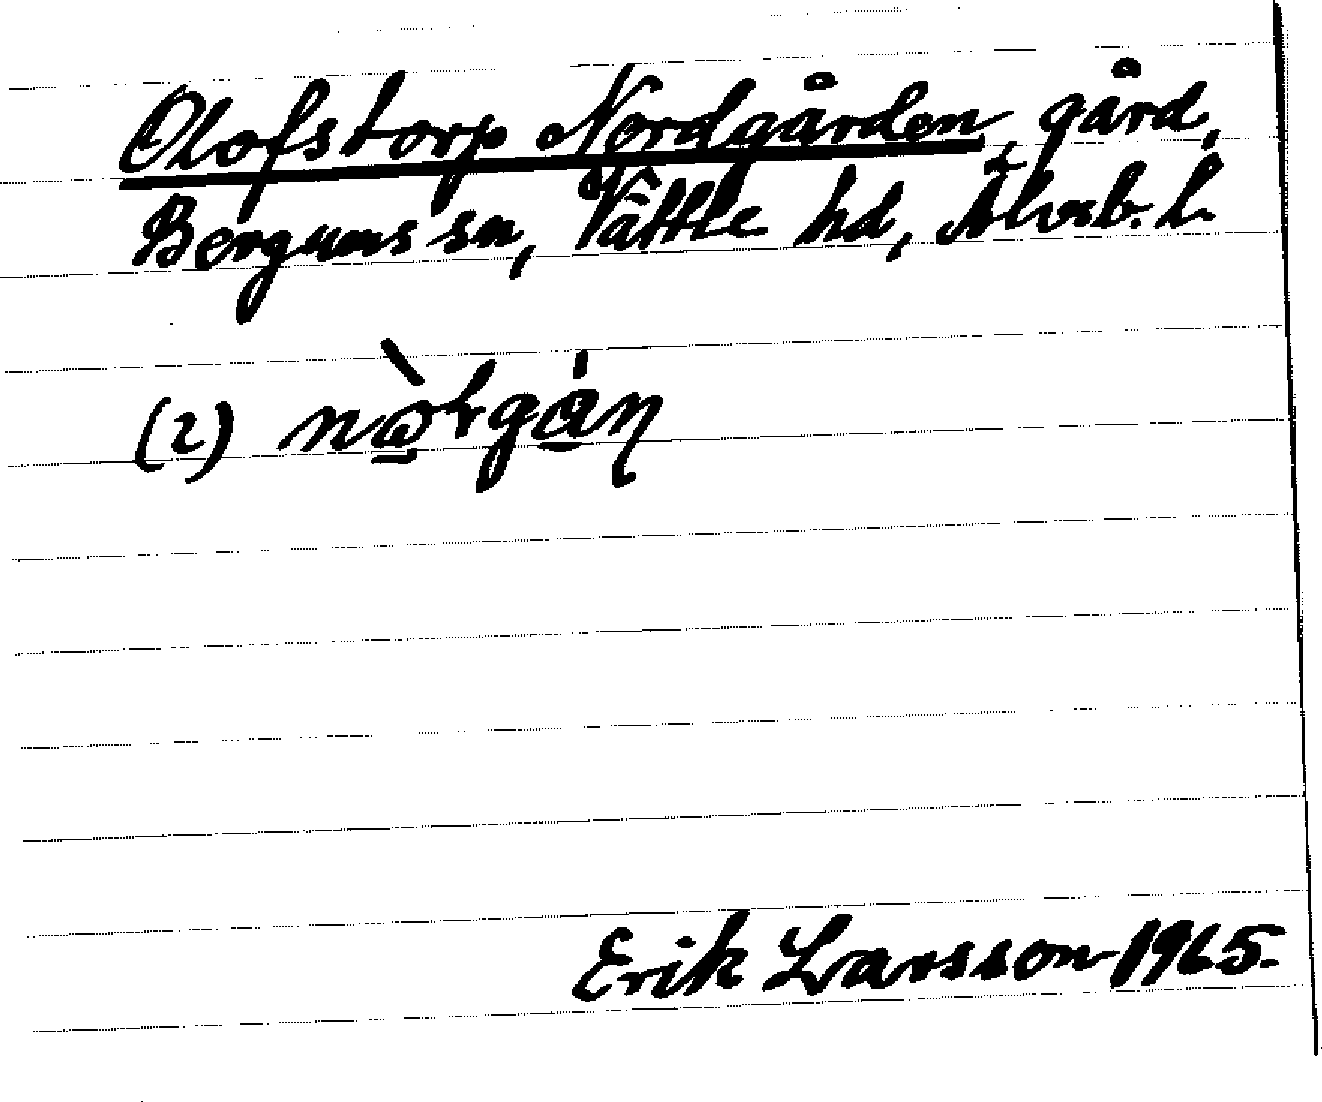 Olofstorp Nordgården, gård,
Bergums sn, Vättle hd, Älvsb. l.
(2)
Erik Larsson 1965.